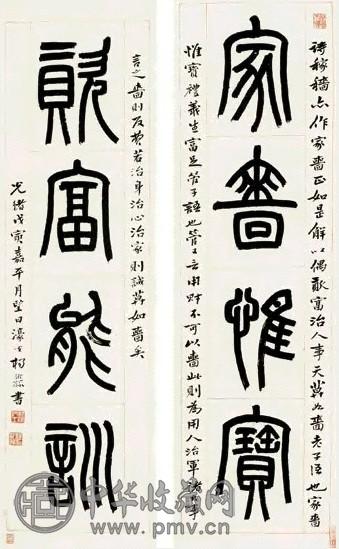 詩稼穡亦作家嗇正如是解以偶資富治人事天莫如嗇老子語也家嗇
家嗇惟寶
惟寶禮義生富足管子語也管又言用財不可以嗇此則為用人治軍諸事
言之嗇則反費若治身治心治家則誠莫如嗇矣
資富能訓
光緒戊寅嘉平月望日濠叟楊沂孫書
中华收藏网
www.pmv.cn